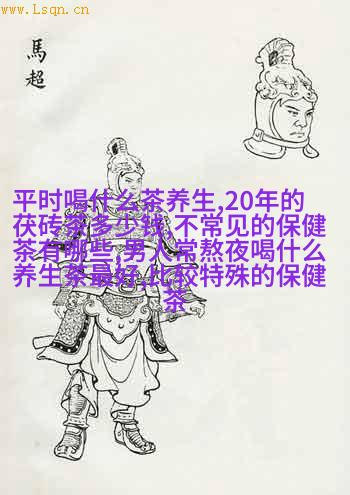 www.Lsqn.cn
馬超
平时喝什么茶养生,20年的
茯砖茶多少钱,不常见的保健
茶有哪些,男人常熬夜喝什么
养生茶最好,比较特殊的保健
茶